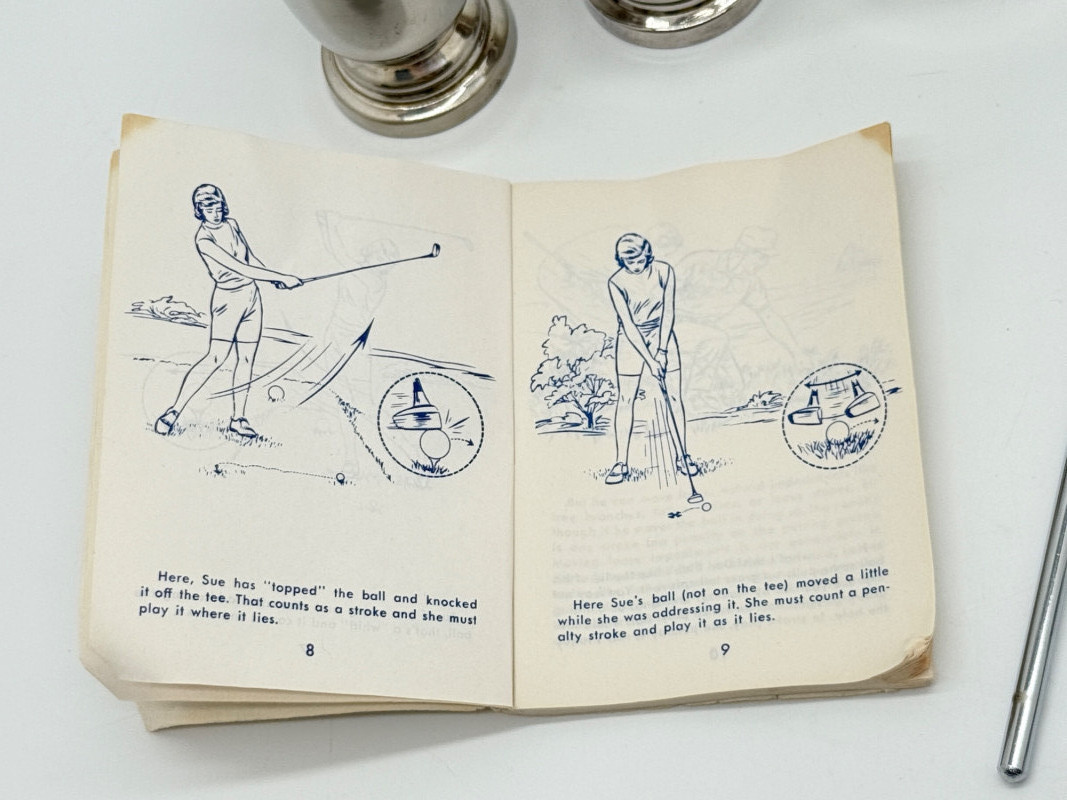 Here, Sue has "topped" the ball and knocked
it off the tee. That counts as a stroke and she must
play it where it lies.
8
Here Sue's ball (not on the tee) moved a little
while she was addressing it. She must count a pen-
alty stroke and play it as it lies.
9